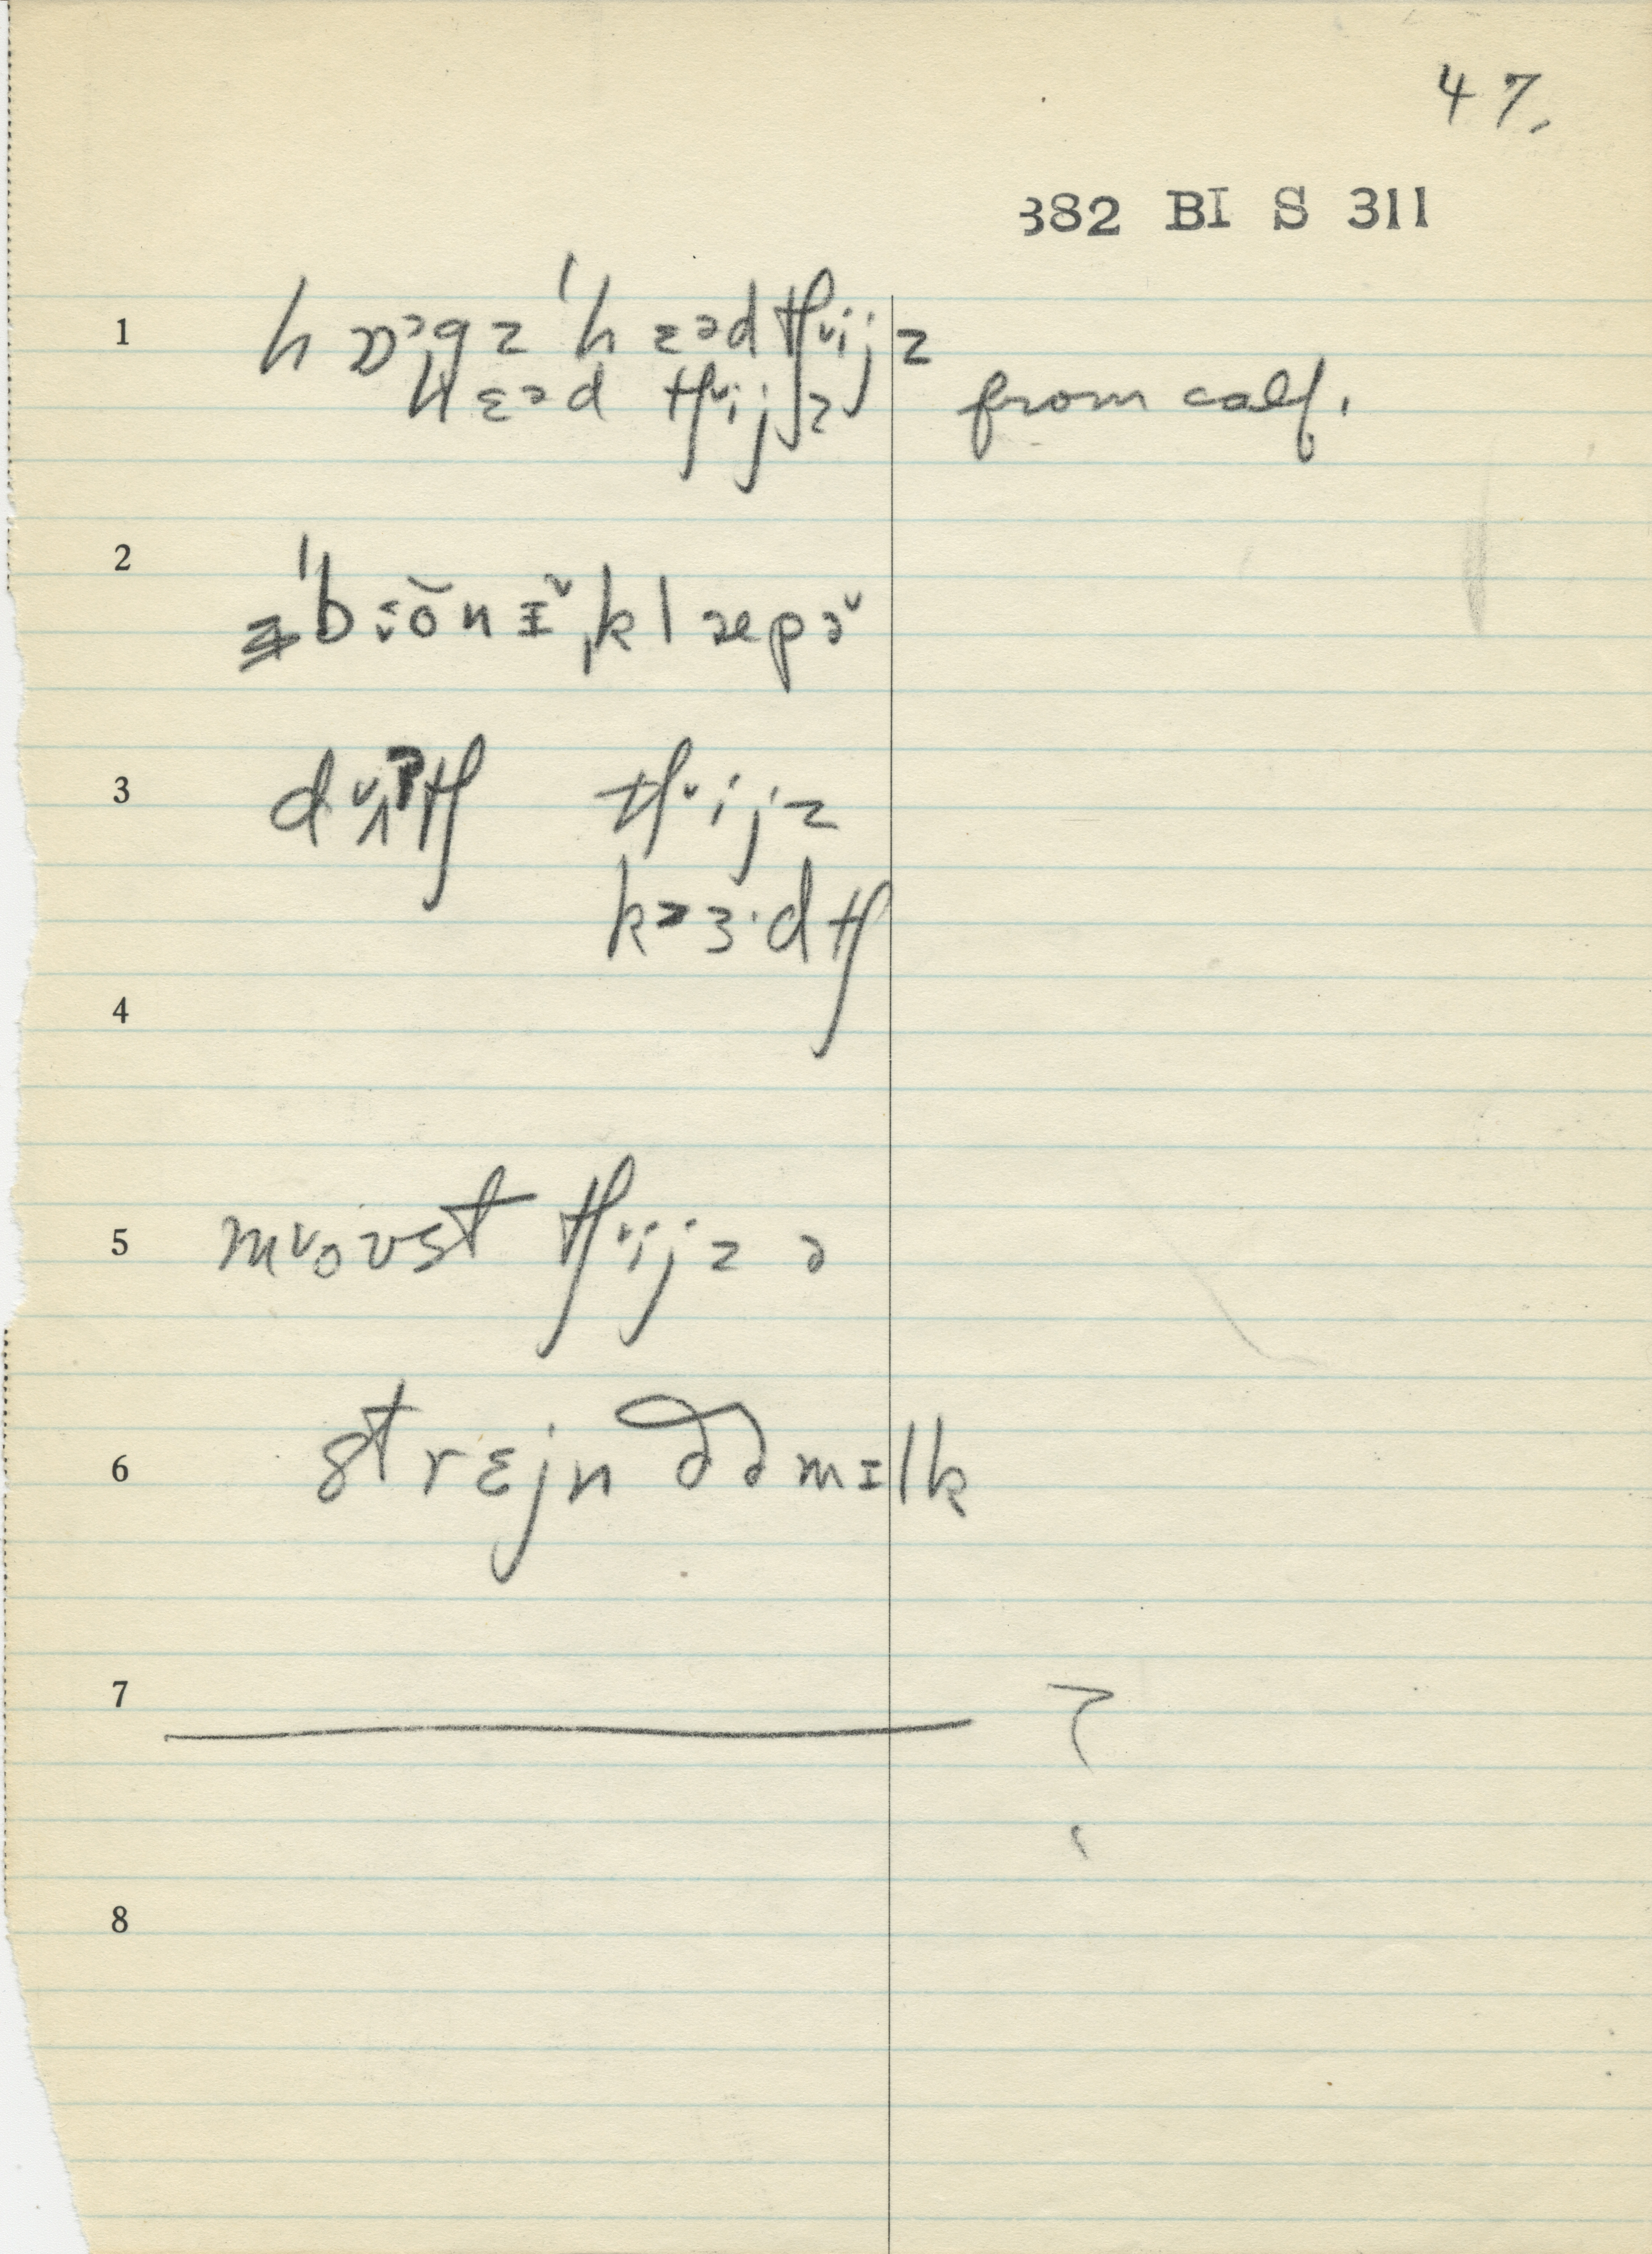 47.
382 BI S 311
1 hɒᵊgz ˈhɛədtʃˇijz
hɛəd tʃˇijz from calf.
2 ˈbɨ:ŏnɪˇˌklæpəˇ
3 dˇʌʔtʃ tʃˇijz
kɜ·dtʃ
4
5 mˇoʊst tʃˇijz ə
6 strɛjn ðə mɪlk
7 ?
8